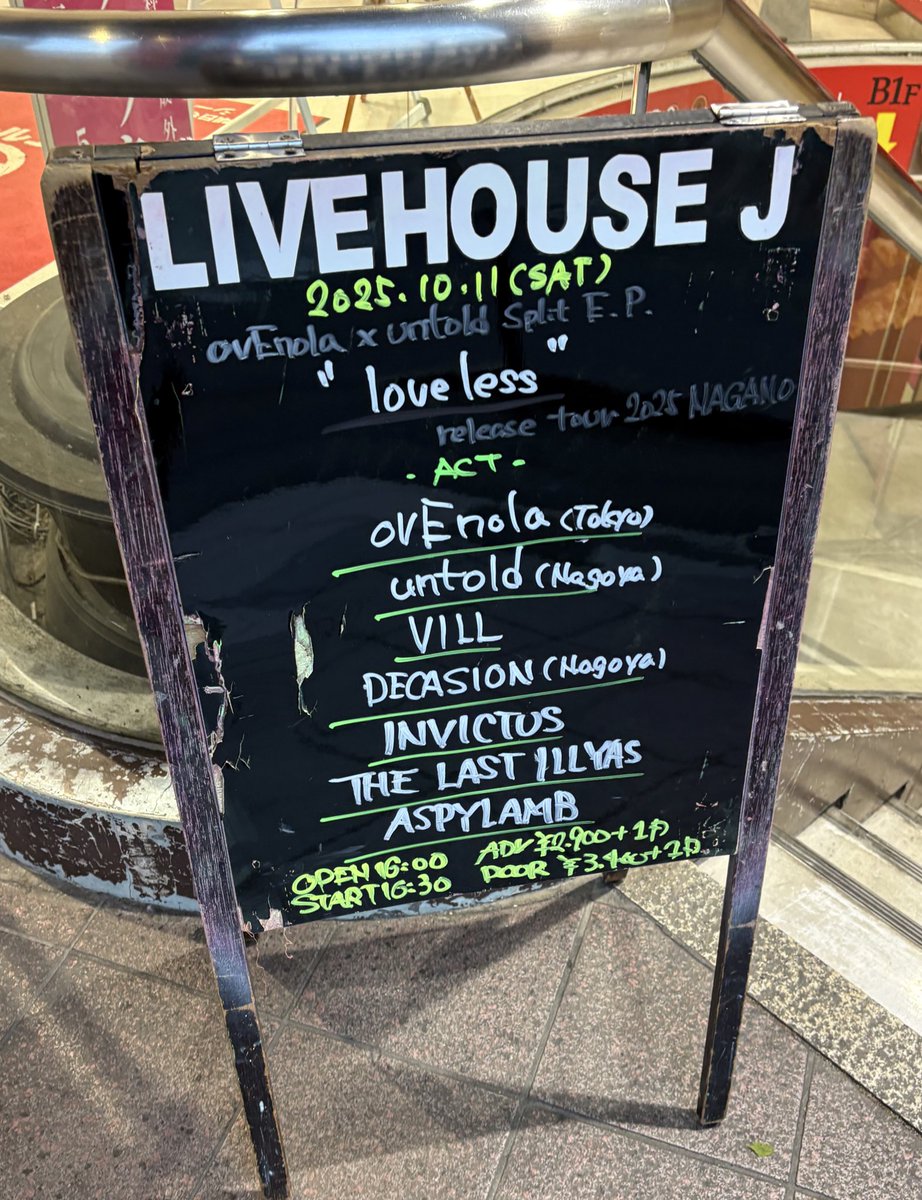 B1F
LIVEHOUSE J
2025.10.11(SAT)
ovEnola x untold Split E.P.
"loveless"
release tour 2025 NAGANO
- ACT -
ovEnola (Tokyo)
untold (Nagoya)
VILL
DECASION (Nagoya)
INVICTUS
THE LAST ILLYAS
ASPYLAMB
OPEN 16:00 ADV ¥2.900+1D
START 16:30 DOOR